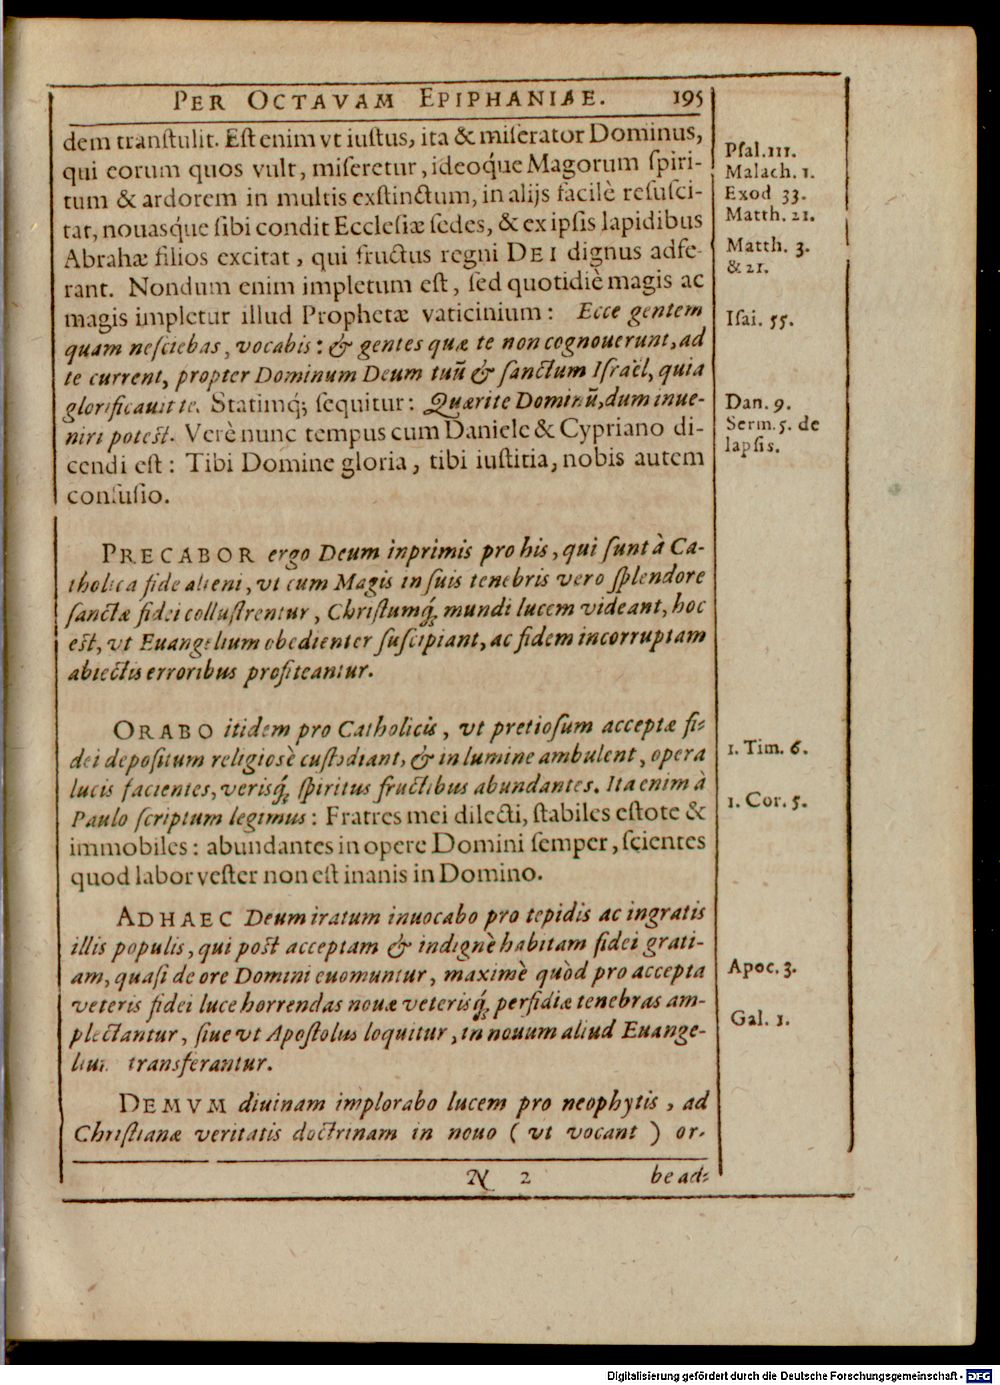 PER OCTAVAM EPIPHANIAE. 195
dem tranſtulit. Eſt enim vt iuſtus, ita & miſerator Dominus,
qui eorum quos vult, miſeretur, ideoq́ue Magorum ſpiri-
tum & ardorem in multis exſtinctum, in alijs facilè reſuſci-
tat, nouasq́ue ſibi condit Eccleſiæ ſedes, & ex ipſis lapidibus
Abrahæ filios excitat, qui fructus regni DEI dignus adfe-
rant. Nondum enim impletum eſt, ſed quotidiè magis ac
magis impletur illud Prophetæ vaticinium: Ecce gentem
quam neſciebas, vocabis: & gentes quæ te non cognouerunt, ad
te current, propter Dominum Deum tuū & ſanctum Iſraël, quia
glorificauit te. Statimq́; ſequitur: Quærite Dominū, dum inue-
niri poteſt. Verè nunc tempus cum Daniele & Cypriano di-
cendi eſt: Tibi Domine gloria, tibi iuſtitia, nobis autem
confuſio.
PRECABOR ergo Deum inprimis pro his, qui ſunt à Ca-
tholica fide alieni, vt cum Magis in ſuis tenebris vero ſplendore
ſanctæ fidei colluſtrentur, Chriſtumq́; mundi lucem videant, hoc
eſt, vt Euangelium obedienter ſuſcipiant, ac fidem incorruptam
abiectis erroribus profiteantur.
ORABO itidem pro Catholicis, vt pretioſum acceptæ fi-
dei depoſitum religioſè cuſtodiant, & in lumine ambulent, opera
lucis facientes, verisq́; ſpiritus fructibus abundantes. Ita enim à
Paulo ſcriptum legimus: Fratres mei dilecti, ſtabiles eſtote &
immobiles: abundantes in opere Domini ſemper, ſcientes
quod labor veſter non eſt inanis in Domino.
ADHAEC Deum iratum inuocabo pro tepidis ac ingratis
illis populis, qui poſt acceptam & indignè habitam fidei grati-
am, quaſi de ore Domini euomuntur, maximè quòd pro accepta
veteris fidei luce horrendas nouæ veterisq́; perfidiæ tenebras am-
plectantur, ſiue vt Apoſtolus loquitur, in nouum aliud Euange-
lium transferantur.
DEMVM diuinam implorabo lucem pro neophytis, ad
Chriſtianæ veritatis doctrinam in nouo ( vt vocant ) or-
N 2 be ad-
Pſal. 111.
Malach. 1.
Exod 33.
Matth. 21.
Matth. 3.
& 21.
Iſai. 55.
Dan. 9.
Serm. 5. de
lapſis.
1. Tim. 6.
1. Cor. 5.
Apoc. 3.
Gal. 1.
Digitalisierung gefördert durch die Deutsche Forschungsgemeinschaft - DFG